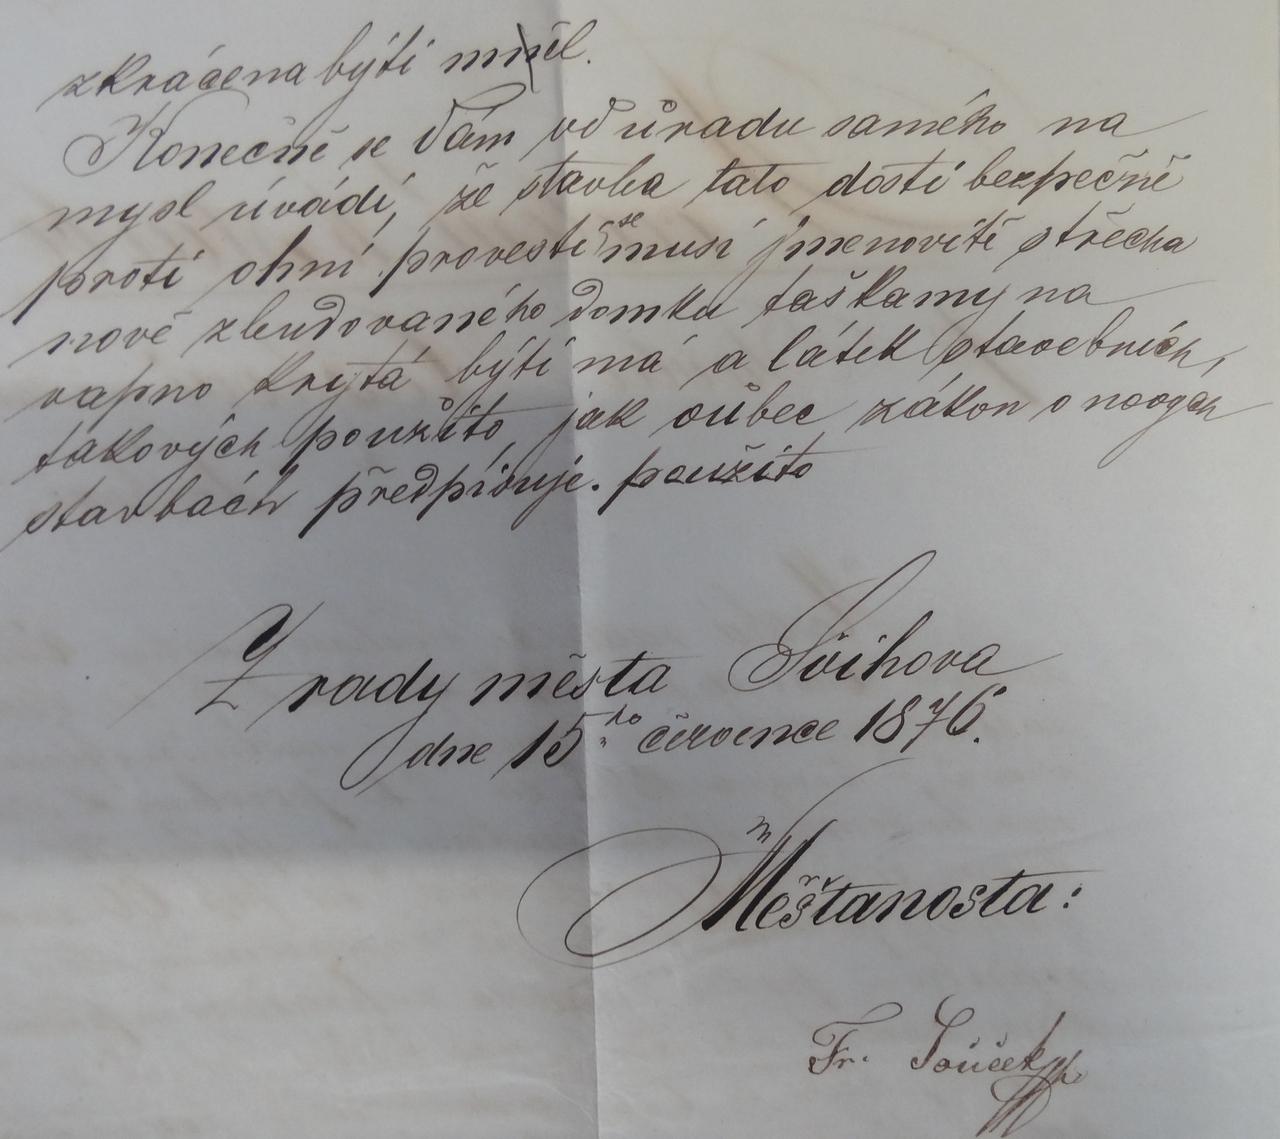 zkrácena býti mněl.
Konečně se Vám od ůradu samého na
mysl úvádí, že stavba tato dosti bezpečně
proti ohni provesti se musí jmenovitě střecha
nově zbudovaného domku taškamy na
vapno krytá býti má a látek stavebních,
takových použito, jak vůbec zákon o nových
stavbách předpisuje. použito
Z rady města Švihova
dne 15ho července 1876.
Měšťanosta:
Fr. Souček